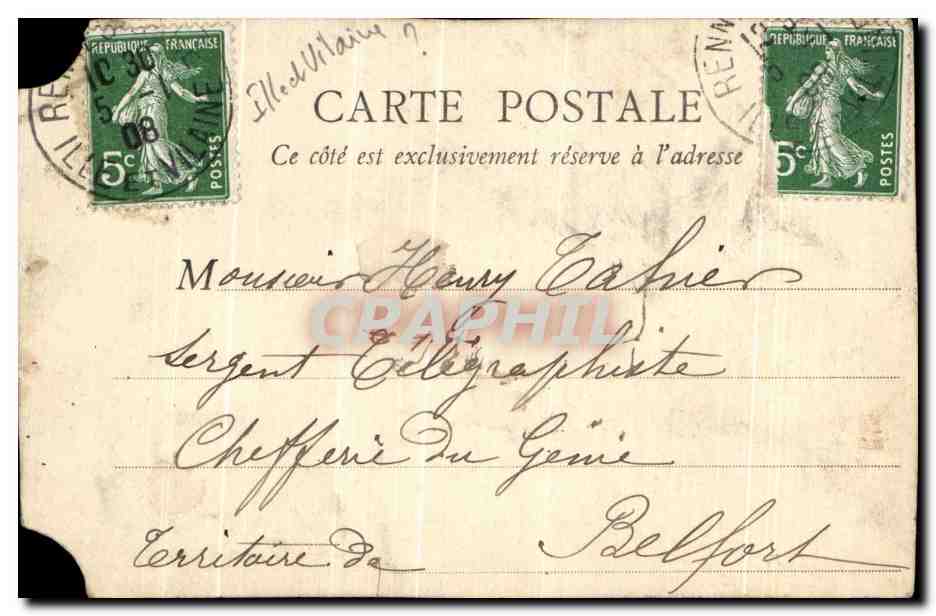 RÉPUBLIQUE FRANÇAISE
5c
POSTES
10 30
5
08
ILLE ET VILAINE
Ille et Vilaine ?
RENN
RÉPUBLIQUE FRANÇAISE
5c
POSTES
CARTE POSTALE
Ce côté est exclusivement réservé à l'adresse
Monsieur Henry Tahier
CPAPHIL
Sergent Télégraphiste
Chefferie du Génie
Belfort
Territoire de